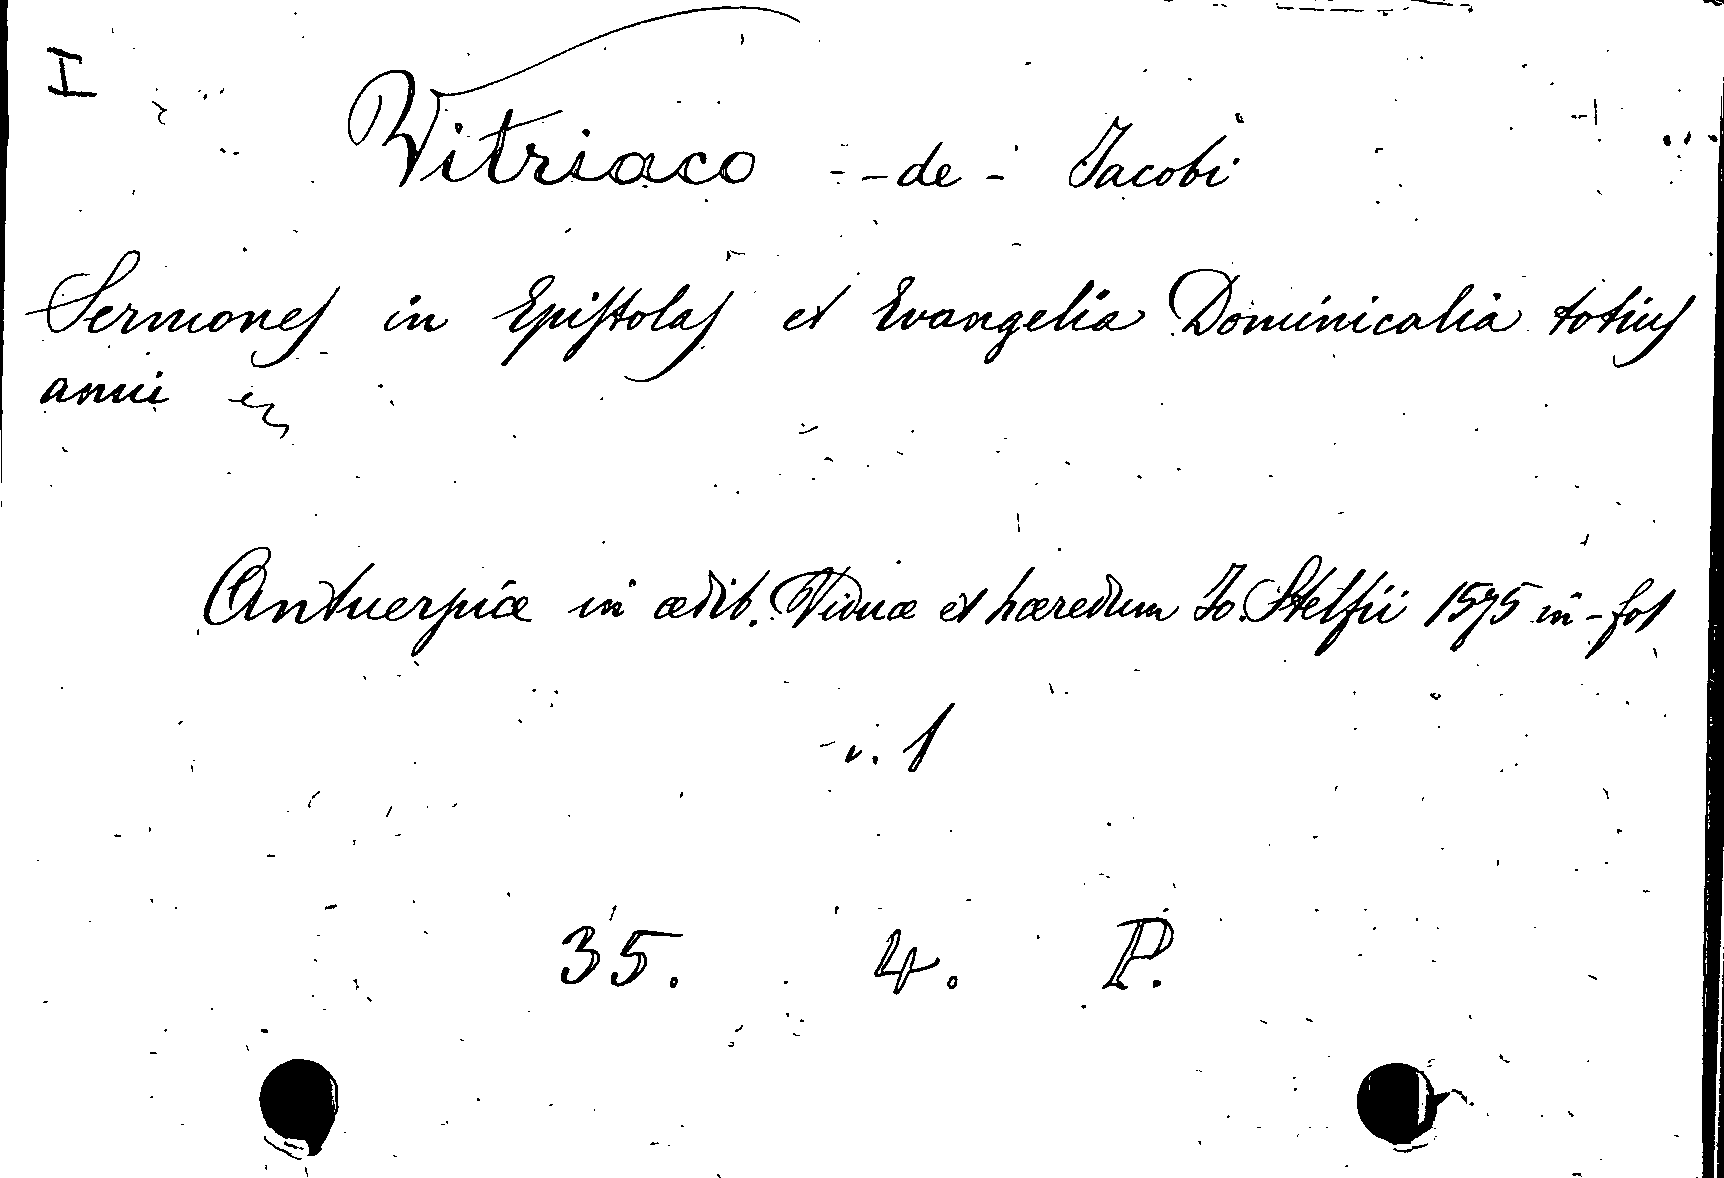 I
Vitriaco - de - Jacobi
Sermones in Epistolas et Evangelia Dominicalia totius
anni
Antuerpiæ in ædib. Viduæ et hæredum Jo. Stelsii 1575 in-fol
v. 1
35. 4. P.